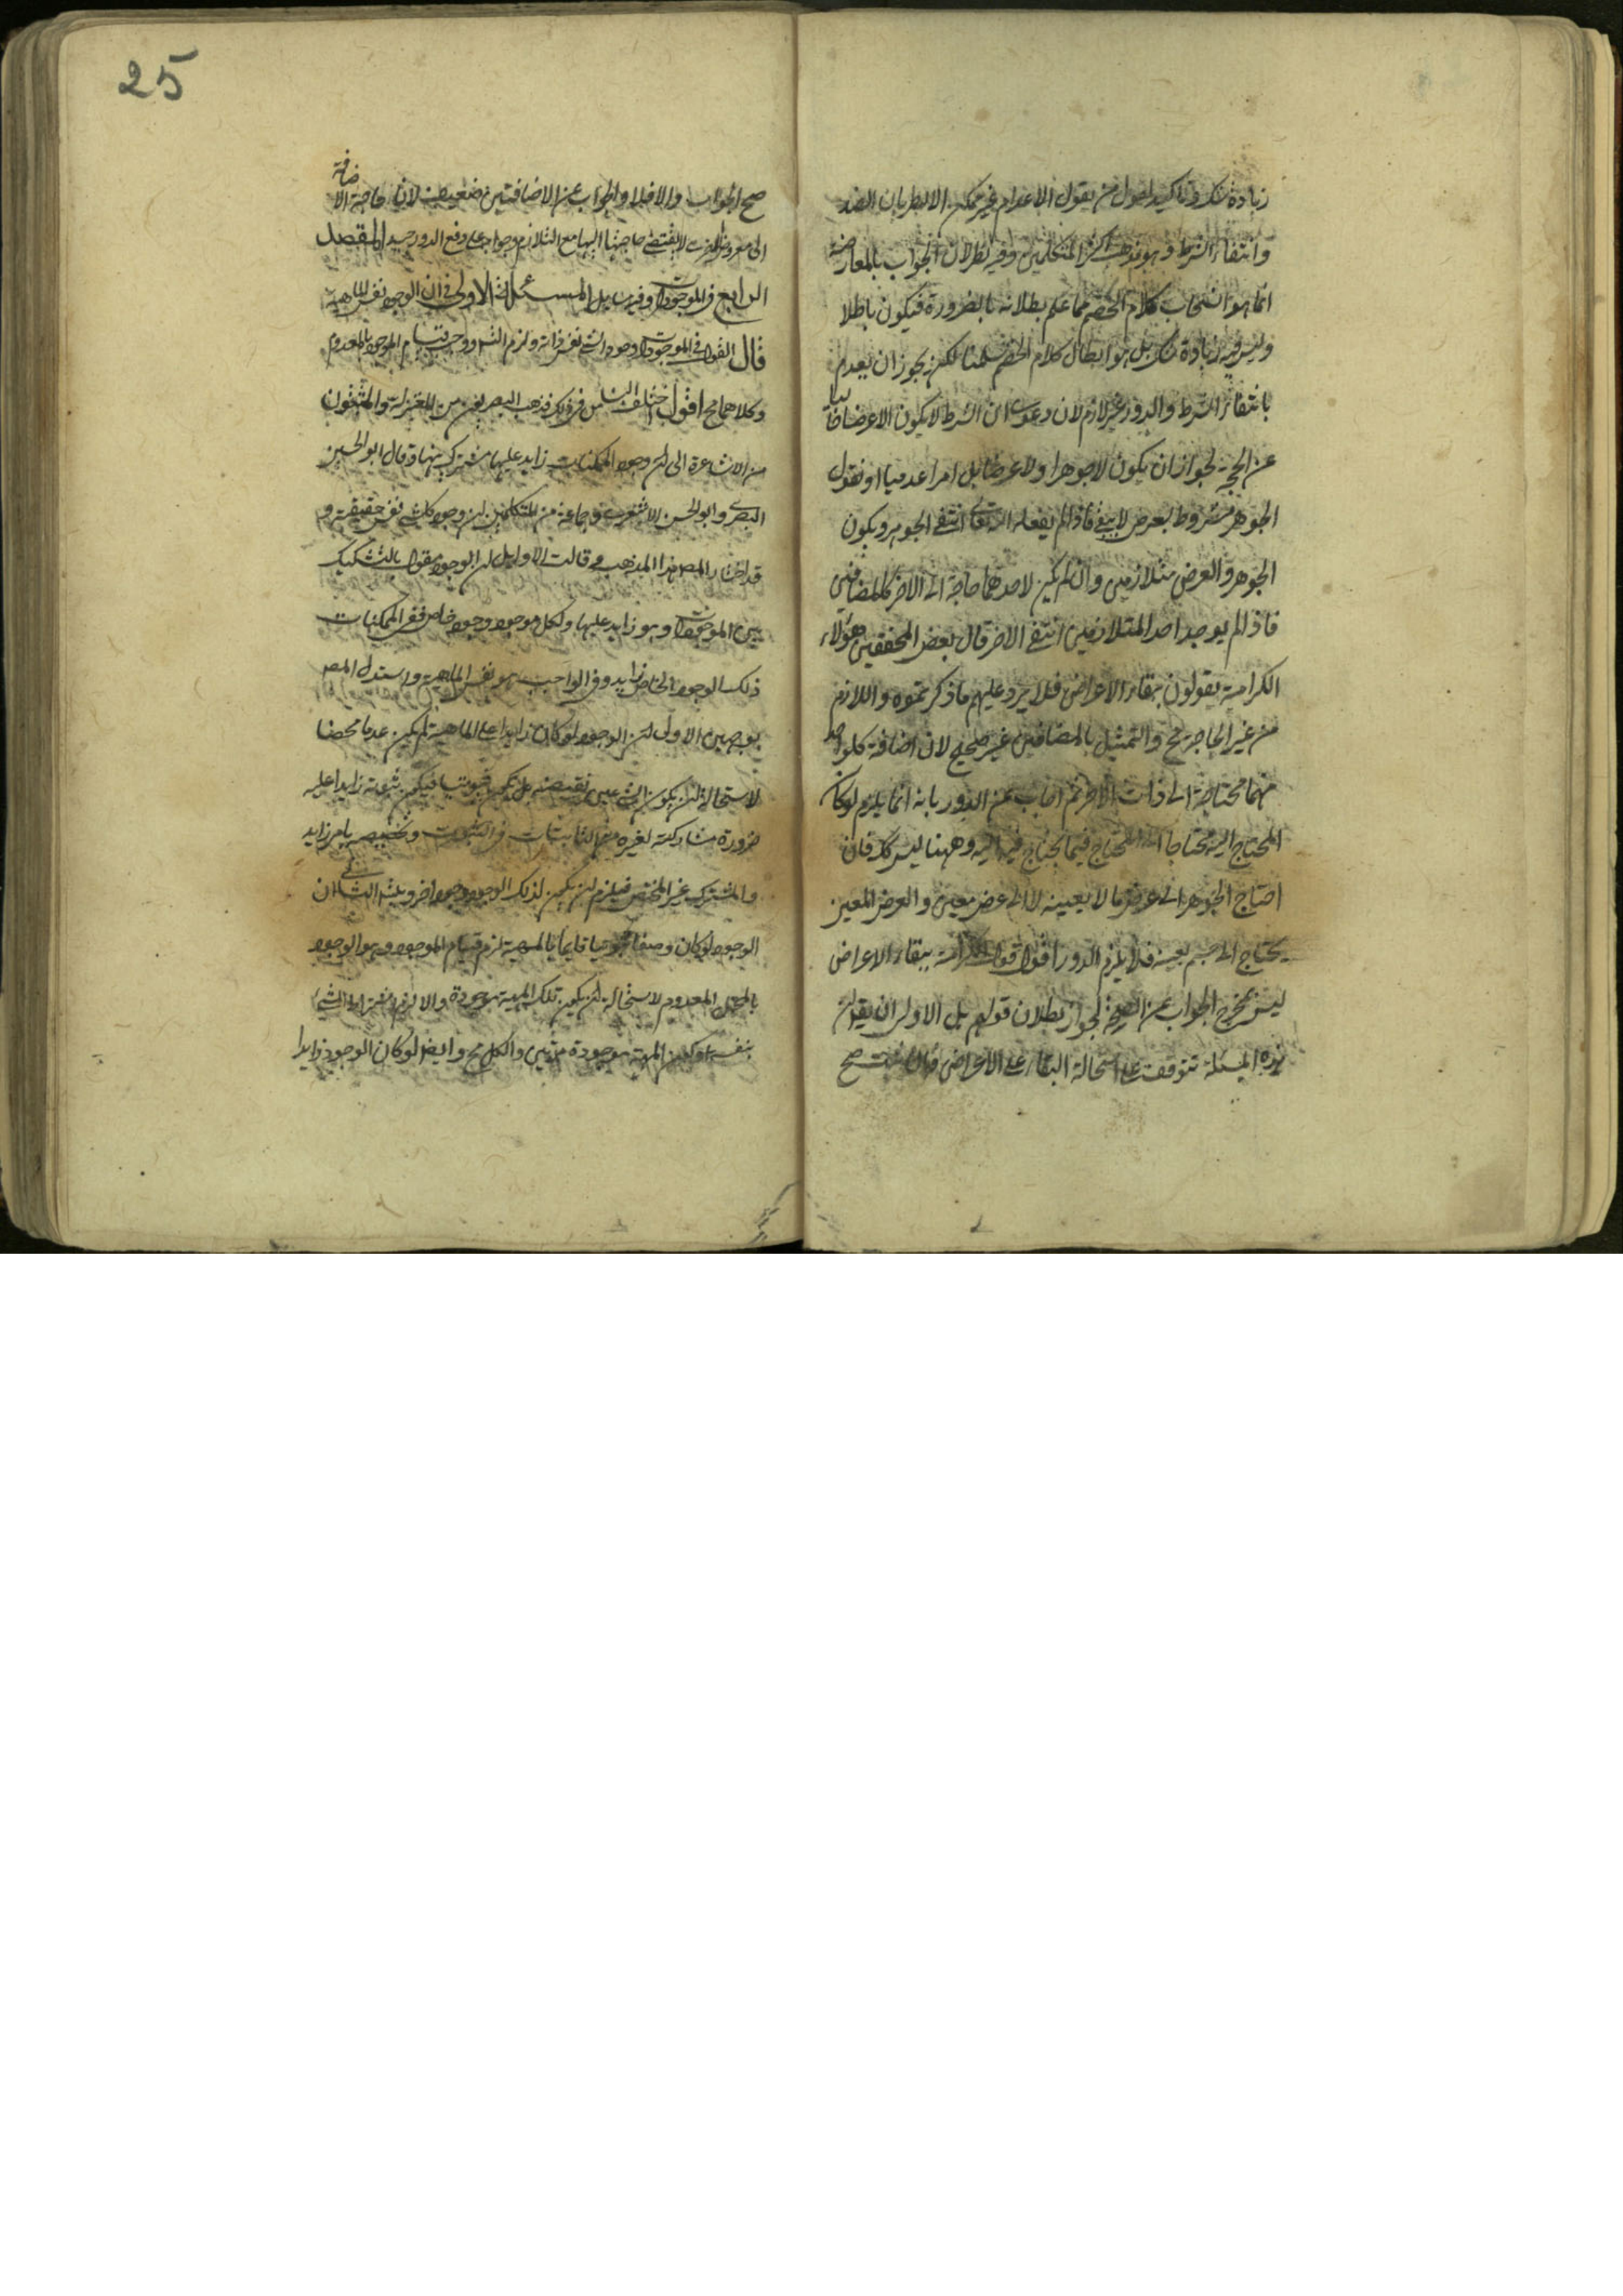 زيادة شك وتاكيد لقول من يقول الاعدام غير ممكن الا بطريان الضد
وانتفاء الشرط وهو مذهب اكثر المتكلمين وفيه نظر لان الجواب بالمعارضة
انما هو انتحاب كلام الخصم مما علم بطلانه بالضرورة فيكون باطلا
وليس فيه زيادة شك بل هو ابطال كلام الخصم سلمنا لكن يجوز ان يعدم
بانتفاء الشرط والدور غير لازم لان دعوى ان الشرط لا يكون الا عرضا خاليا
عن الحجة لجواز ان يكون لا جوهرا ولا عرضا بل امرا عدميا او نقول
الجوهر مشروط بعرض لا يبقى فاذا لم يفعله الله تعالى انتفى الجوهر ويكون
الجوهر والعرض متلازمين وان لم يكن لاحدهما حاجة الى الاخر كالمضافين
فاذا لم يوجد احد المتلازمين انتفى الاخر قال بعض المحققين هؤلاء
الكرامية يقولون ببقاء الاعراض فلا يرد عليهم ما ذكرتموه واللازم
من غير الحاجة مح والتمثيل بالمضافين غير صحيح لان اضافة كل واحد
منهما محتاجة الى ذات الاخر ثم اجاب عن الدور بانه انما يلزم لو كان
المحتاج اليه محتاجا الى المحتاج فيما يحتاج فيه اليه وههنا ليس كك فان
احتاج الجوهر الى عرض ما لا بعينه لا الى عرض معين والعرض المعين
يحتاج الى جسم بعينه فلا يلزم الدور اقول قول الكرامية ببقاء الاعراض
ليس يخرج الجواب عن الصحة لجواز بطلان قولهم بل الاولى ان يقول
هذه المسئلة تتوقف على استحالة البقاء على الاعراض فان صح
25
صح الجواب والا فلا والجواب عن الاضافتين ضعيف لان حاجة الاضافة
الى معروض الاخرى لا يقتضي حاجتها اليها مع التلازم وجوابه على دفع الدور جيد المقصد
الرابع في الموجودات وفيه مسائل المسئلة الاولى في ان الوجود نفس الماهية
قال القول في الموجودات وجود الشيء نفس ذاته ولزم التس ووجب قيام الموجود بالمعدوم
وكلاهما مح اقول اختلف الناس في ذلك فذهب البصريون من المعتزلة والمثبتون
من الاشاعرة الى ان وجود الممكنات زايد عليها مشترك بينها وقال ابو الحسين
البصري وابو الحسن الاشعري وجماعة من المتكلمين ان وجود كل شيء نفس حقيقته و
قد اختار المصـ هذا المذهب وقالت الاوايل ان الوجود مقول بالتشكيك
بين الموجودات وهو زايد عليها ولكل موجود وجود خاص ففي الممكنات
ذلك الوجود الخاص زايد وفي الواجب هو نفس الماهية واستدل المصـ
بوجهين الاول ان الوجود لو كان زايدا على الماهية لم يكن عدما محضا
لاستحالة ان يكون الشيء عين نقيضه بل يكون ثبوتيا فيكون ثبوته زايدا عليه
ضرورة مشاركته لغيره من الثابتات في الثبوت وتخصيصه بامر زايد
والمشترك غير المختص فيلزم ان يكون لذلك الوجود وجود اخر ويتس الثاني ان
الوجود لو كان وصفا ثبوتيا قايما بالمهية لزم قيام الموجود وهو الوجود
بالمحل المعدوم لاستحالة ان يكون تلك المهية موجودة والا لزم اشتراط الشيء
بنفسه وكون المهية موجودة مرتين والكل مح وايضا لو كان الوجود زايدا